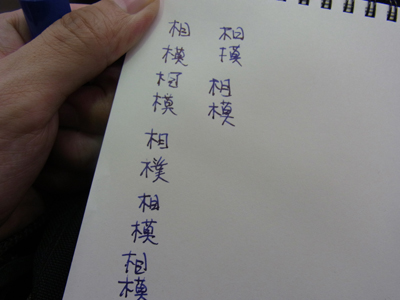 相模
相模
相模
相模
相模
相模
相模